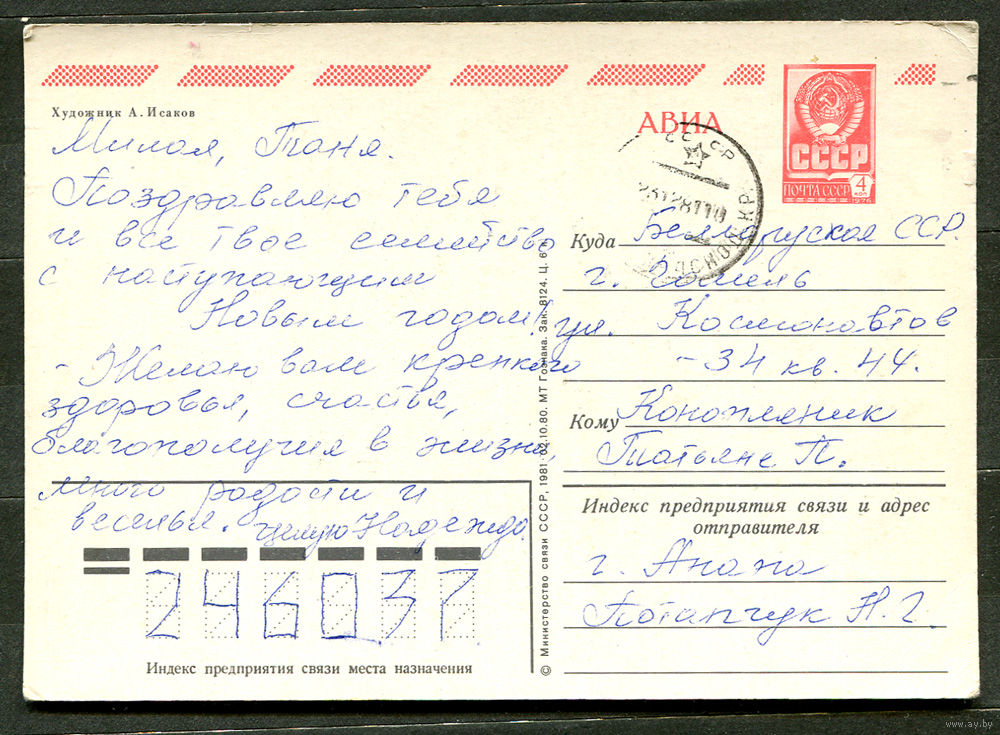 Художник А. Исаков
Милая, Таня.
Поздравляю тебя
и все твое семейство
с наступающим
Новым годом!
- Желаю вам крепкого
здоровья, счастья,
благополучия в жизни,
много радости и
веселья. Целую Надежда.
246037
Индекс предприятия связи места назначения
© Министерство связи СССР, 1981. 02.10.80. МТ Гознака. Зак. 8124. Ц. 6 к.
АВИА
СССР
ПОЧТА СССР
4
КОП
1976
СССР
Куда Белорусская ССР.
г. Гомель
ул. Космонавтов
- 34 кв. 44.
Кому Конопляник
Татьяне П.
Индекс предприятия связи и адрес
отправителя
г. Анапа
Потапчук Н. Г.
www.ay.by